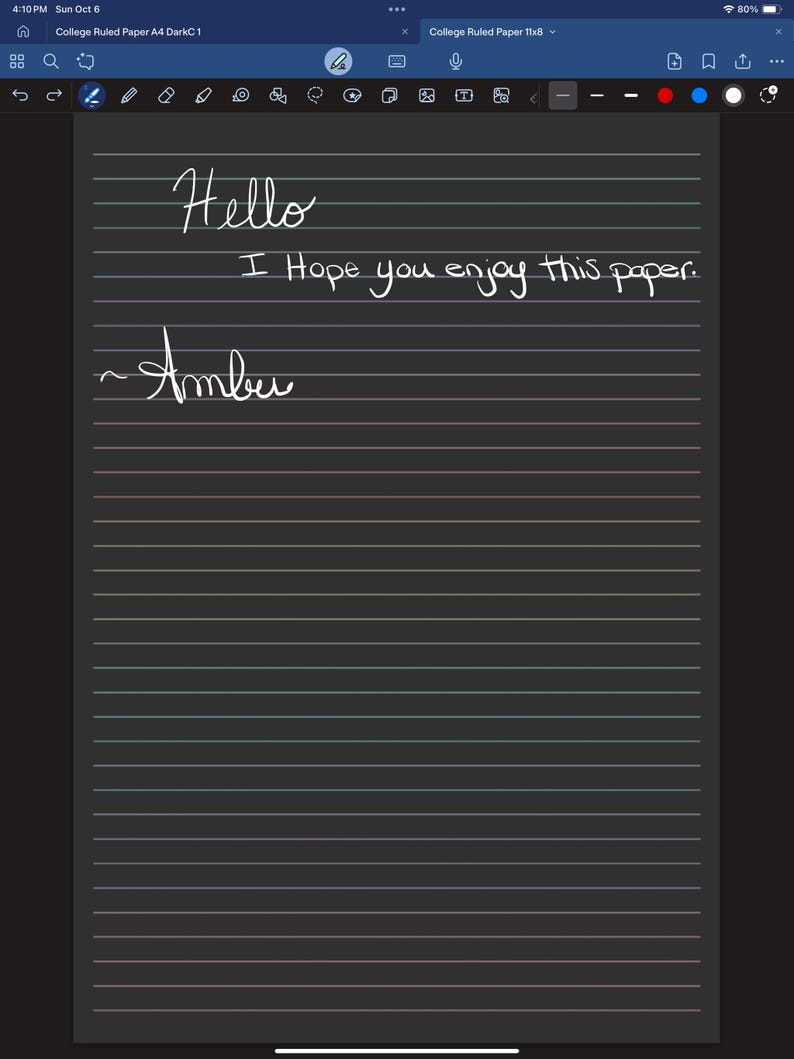 4:10 PM Sun Oct 6 80%
College Ruled Paper A4 DarkC 1 College Ruled Paper 11x8
Hello
I Hope you enjoy this paper.
~Amber